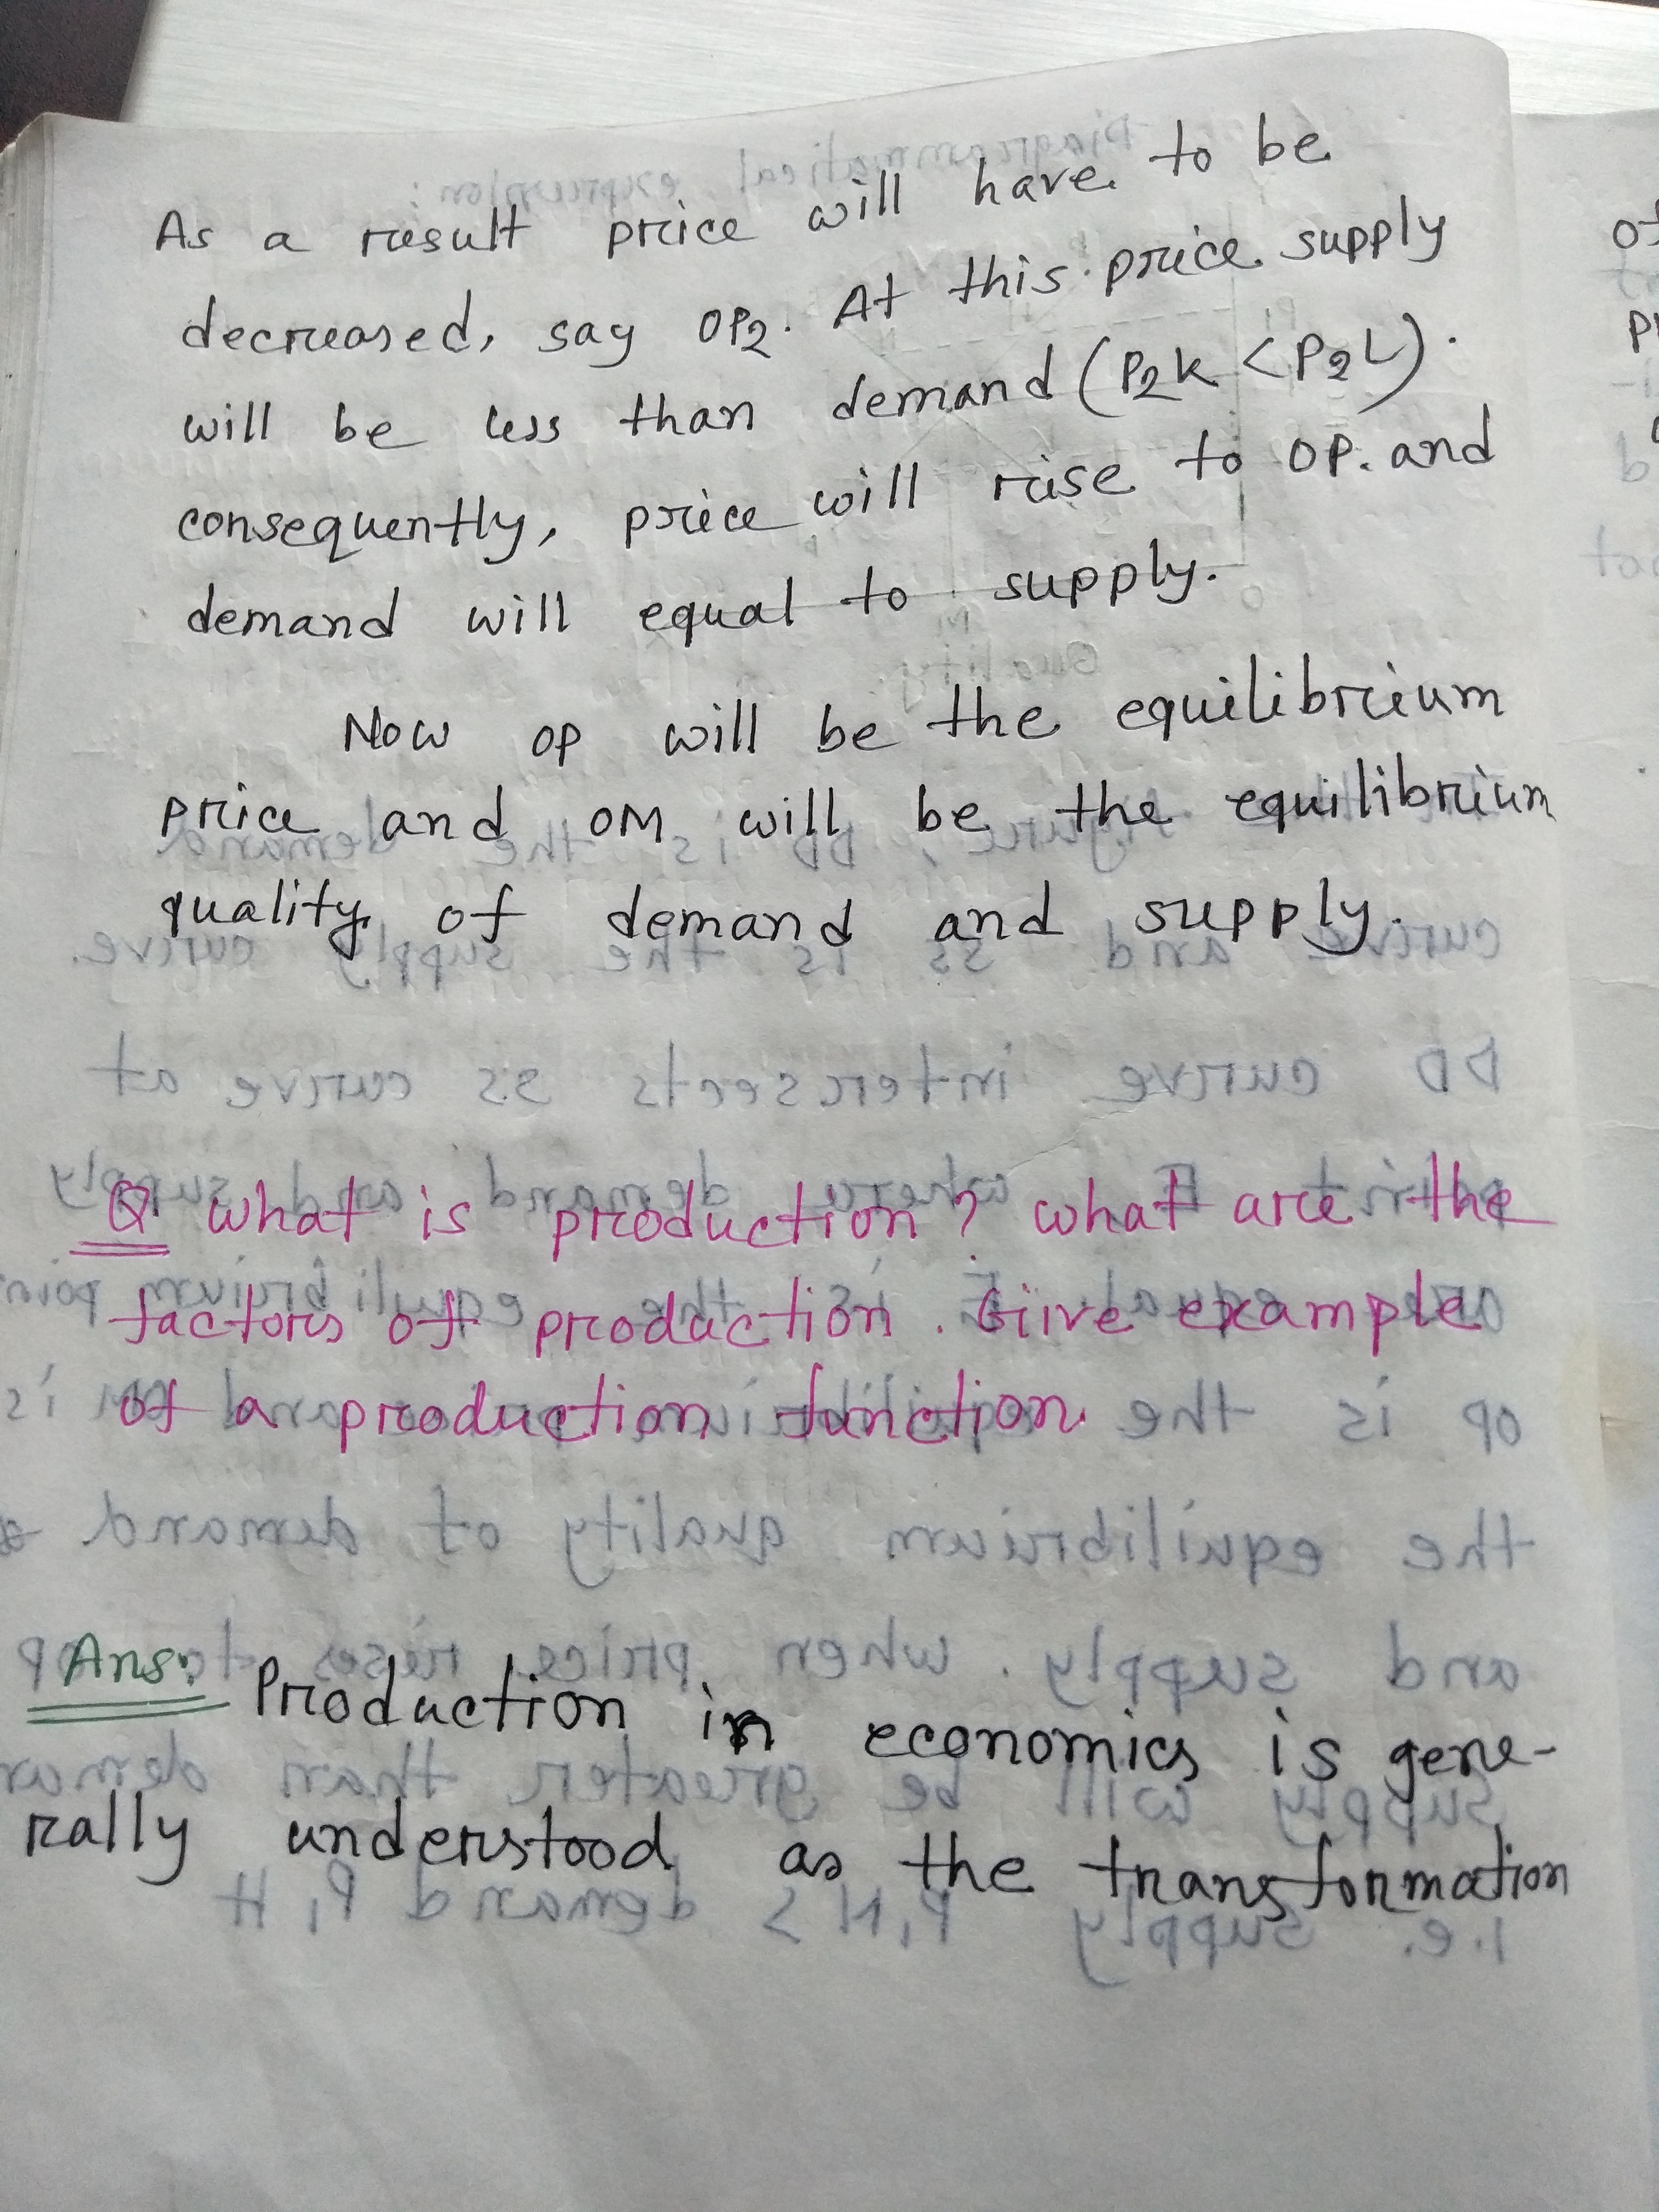 As a result price will have to be
decreased, say OP2. At this price supply
will be less than demand (P2K < P2L).
consequently, price will rise to OP. and
demand will equal to supply.
Now OP will be the equilibrium
price and OM will be the equilibrium
quality of demand and supply.
Q What is production? What are the
factors of production. Give example
of a production function.
Ans: Production in economics is gene-
rally understood as the transformation